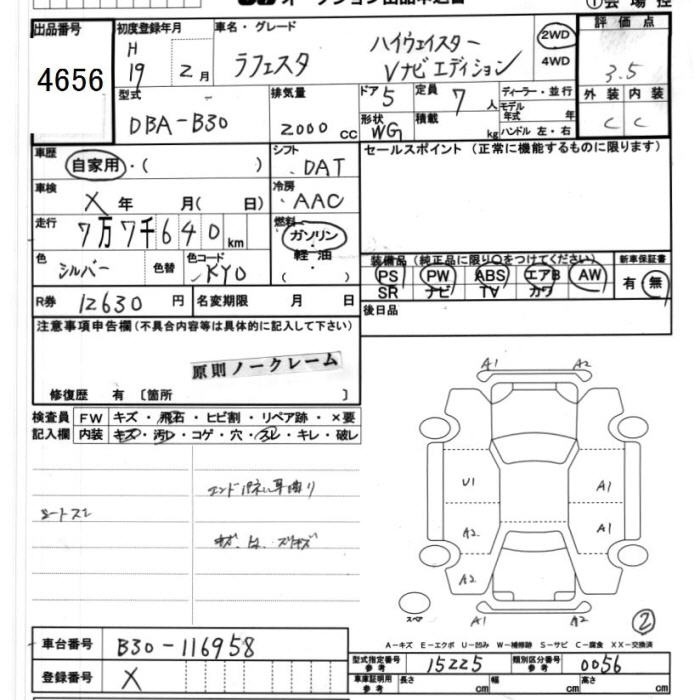 オークション出品申込書
出品番号 初度登録年月 車名・グレード 評価点
4656
H 19 2月 ラフェスタ ハイウェイスター Vナビエディション 2WD 4WD 3.5
型式 排気量 ドア 5 定員 7人 ディーラー・並行 外装 内装
DBA-B30 2000cc 形状 WG 積載 kg モデル年式 年 ハンドル 左・右 C C
車歴 自家用・( ) シフト DAT セールスポイント(正常に機能するものに限ります)
車検 X 年 月( 日) 冷房 AAC
走行 7万7千640km 燃料 ガソリン・軽油・( )
色 シルバー 色替 色コード KY0 装備品(純正品に限り○をつけてください) 新車保証書
PS PW ABS エアB AW 有・無
SR ナビ TV カワ
R券 12630円 名変期限 月 日 後日品
注意事項申告欄(不具合内容等は具体的に記入して下さい)
原則ノークレーム
修復歴 有〔箇所 〕
検査員 FW キズ・飛石・ヒビ割・リペア跡・×要
記入欄 内装 キズ・汚レ・コゲ・穴・スレ・キレ・破レ
シートスレ
A1 A2
U1 A1
A2 A1
A2
A1 A2
スペア
2
A-キズ E-エクボ U-凹み W-補修跡 S-サビ C-腐食 XX-交換済
車台番号 B30-116958
型式指定番号 参考 15225 類別区分番号 参考 0056
登録番号 X 車庫証明用 参考 長さ cm 幅 cm 高さ cm